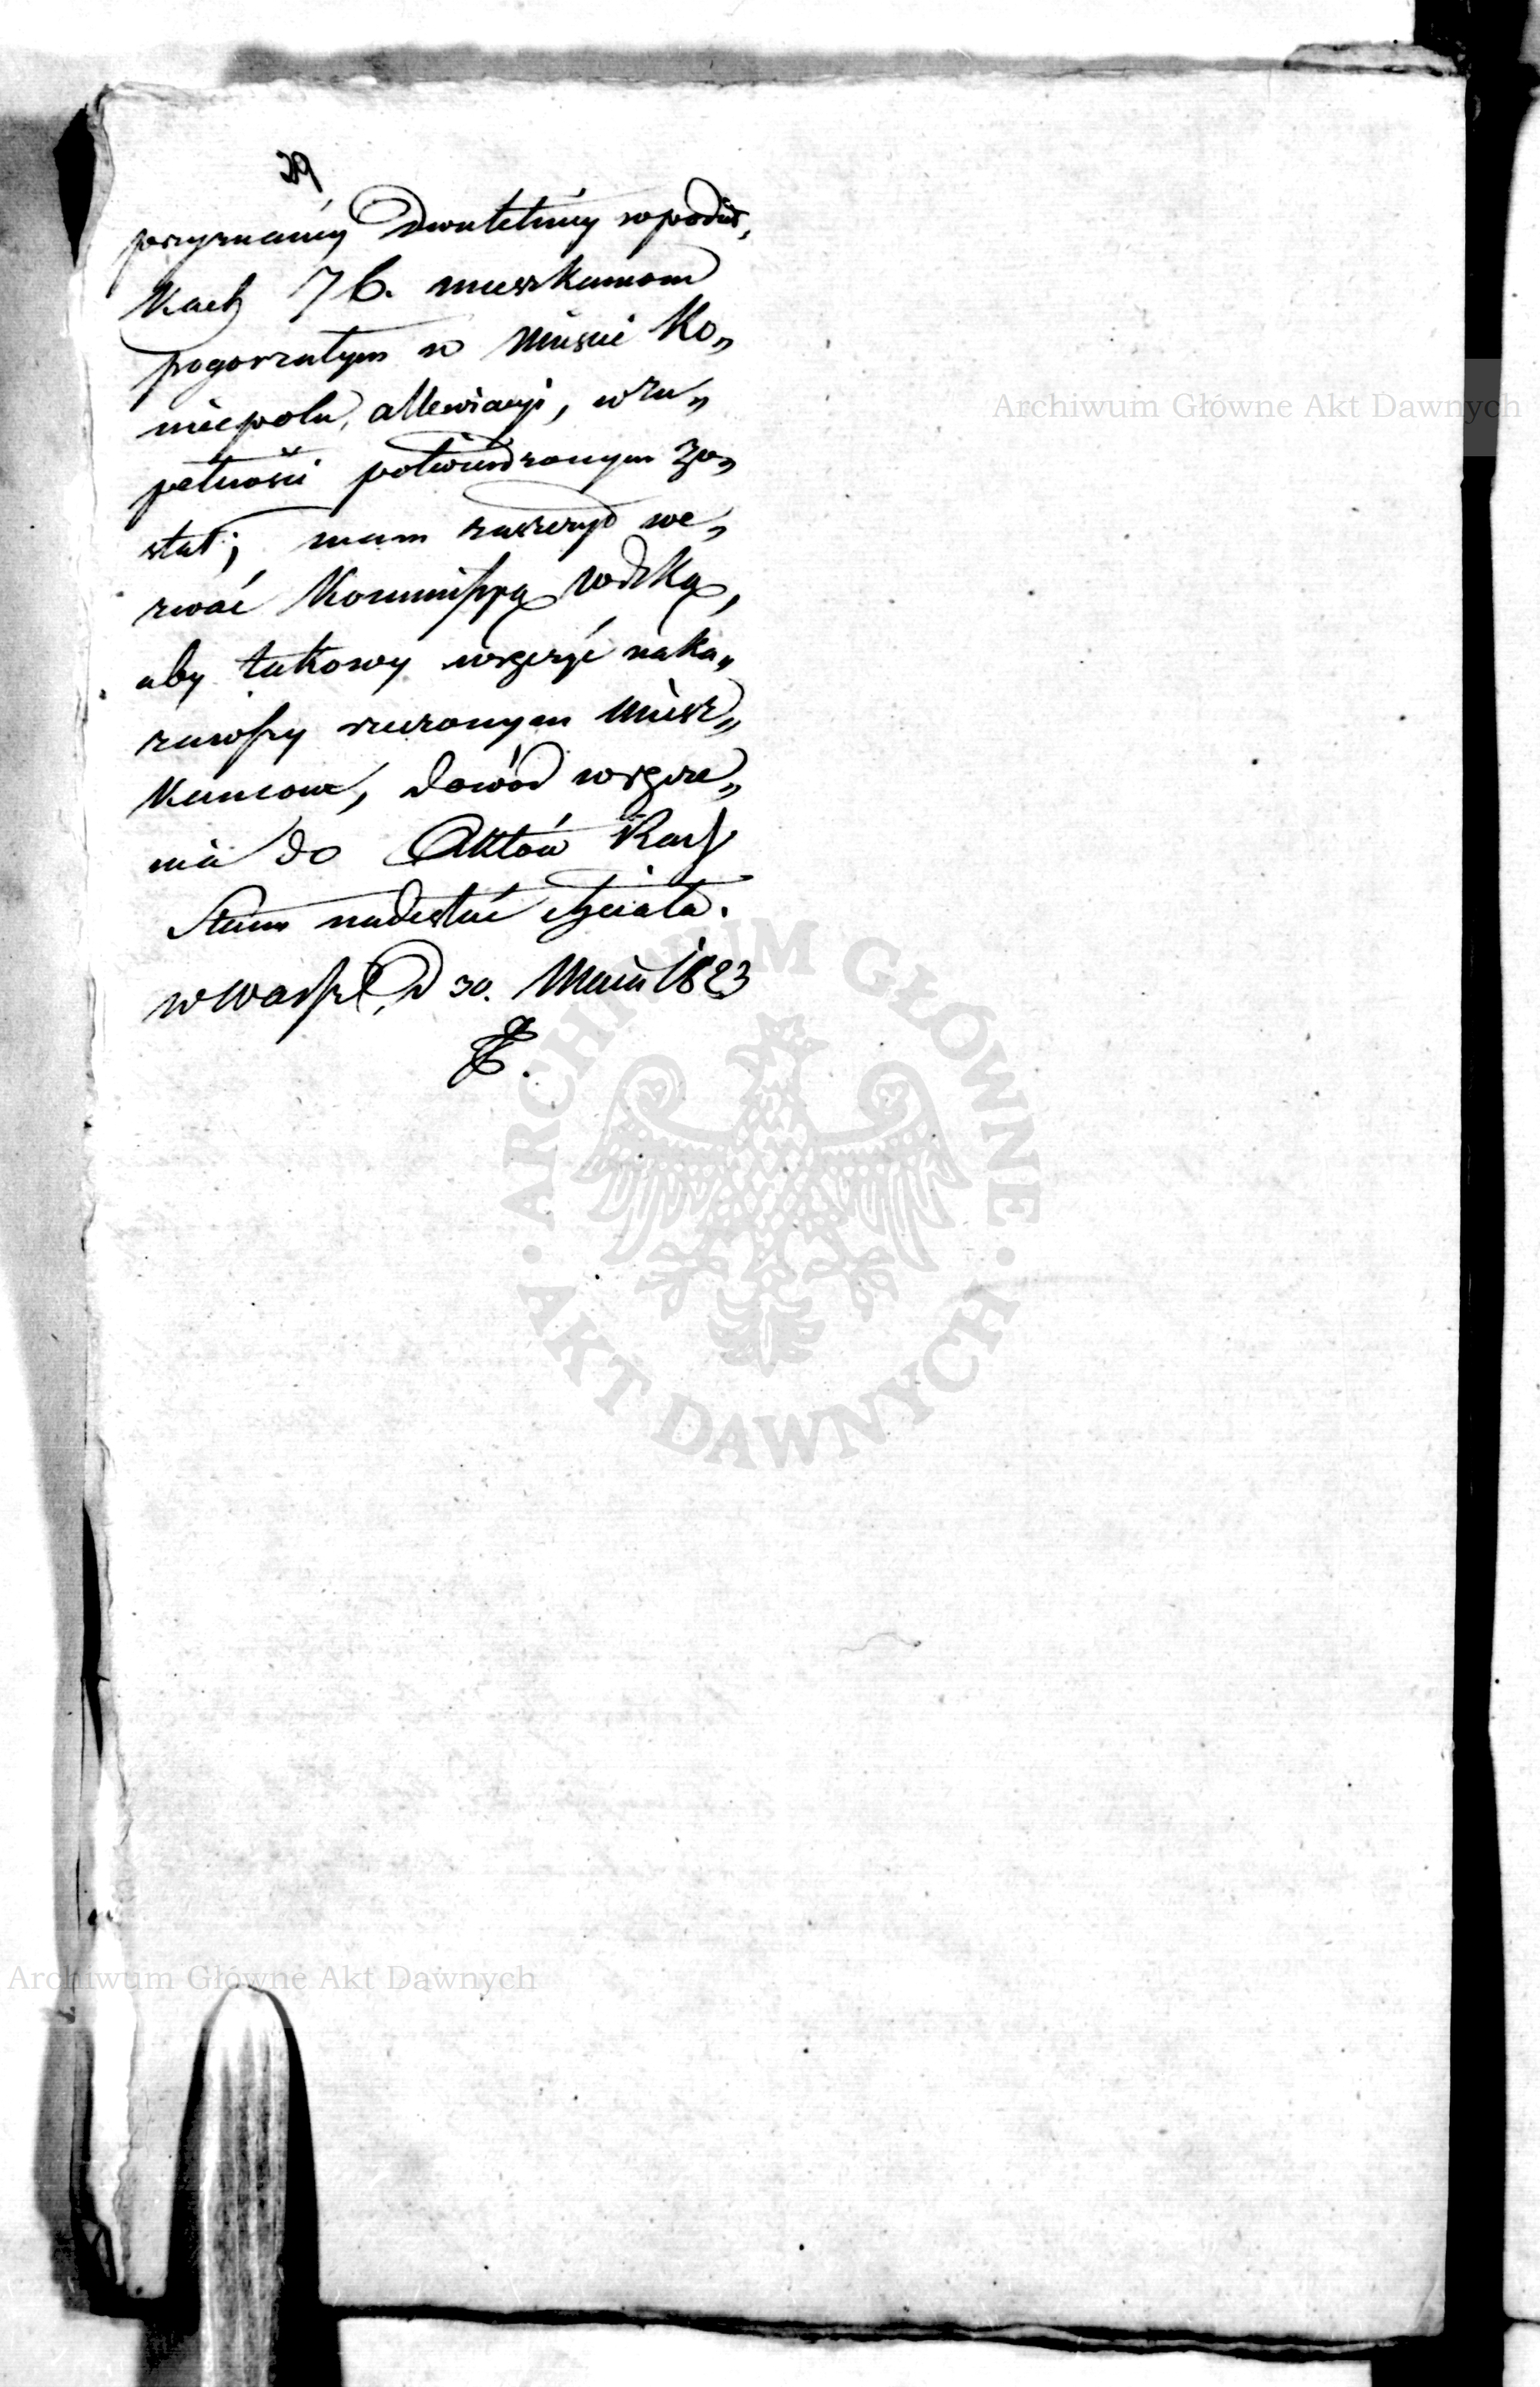 29
przyznaniu Dwuletniey w podat,
kach 76. mieszkancom
pogorzałym w Mieście Ko„
niecpolu, allewiacyi, w zu„
pełności potwierdzonym zo„
stał; mam zaszczyd we„
zwać Kommissyą Wdzką,
aby takowy wręczyć naka„
zawszy rzeczonym Miesz„
kancom, dowód wręcze„
nia do Aktów
Stanu nadesłać chciała.
w Warsz. d 30. Maia 1823
Archiwum Główne Akt Dawnych
ARCHIWUM GŁÓWNE
AKT DAWNYCH
Archiwum Główne Akt Dawnych